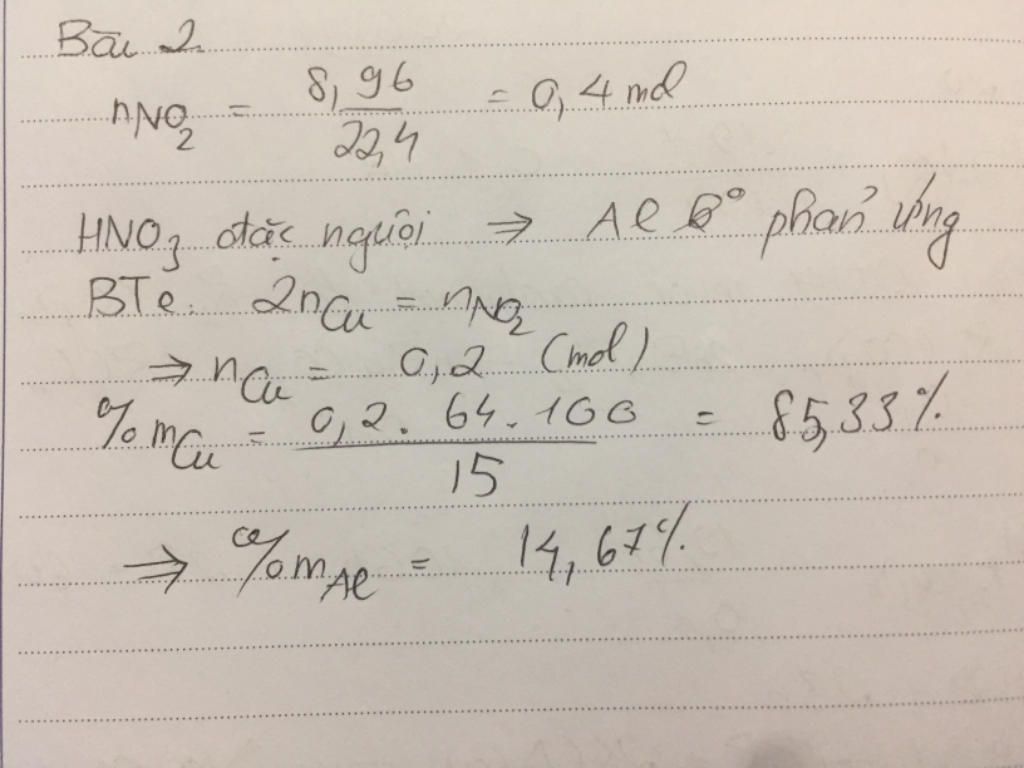 Bài 2
nNO₂ = 8,96 / 22,4 = 0,4 mol
HNO₃ đặc nguội ⇒ Al k° phản ứng
BTe: 2nCu = nNO₂
⇒ nCu = 0,2 (mol)
%mCu = 0,2 . 64 . 100 / 15 = 85,33%
⇒ %mAl = 14,67%